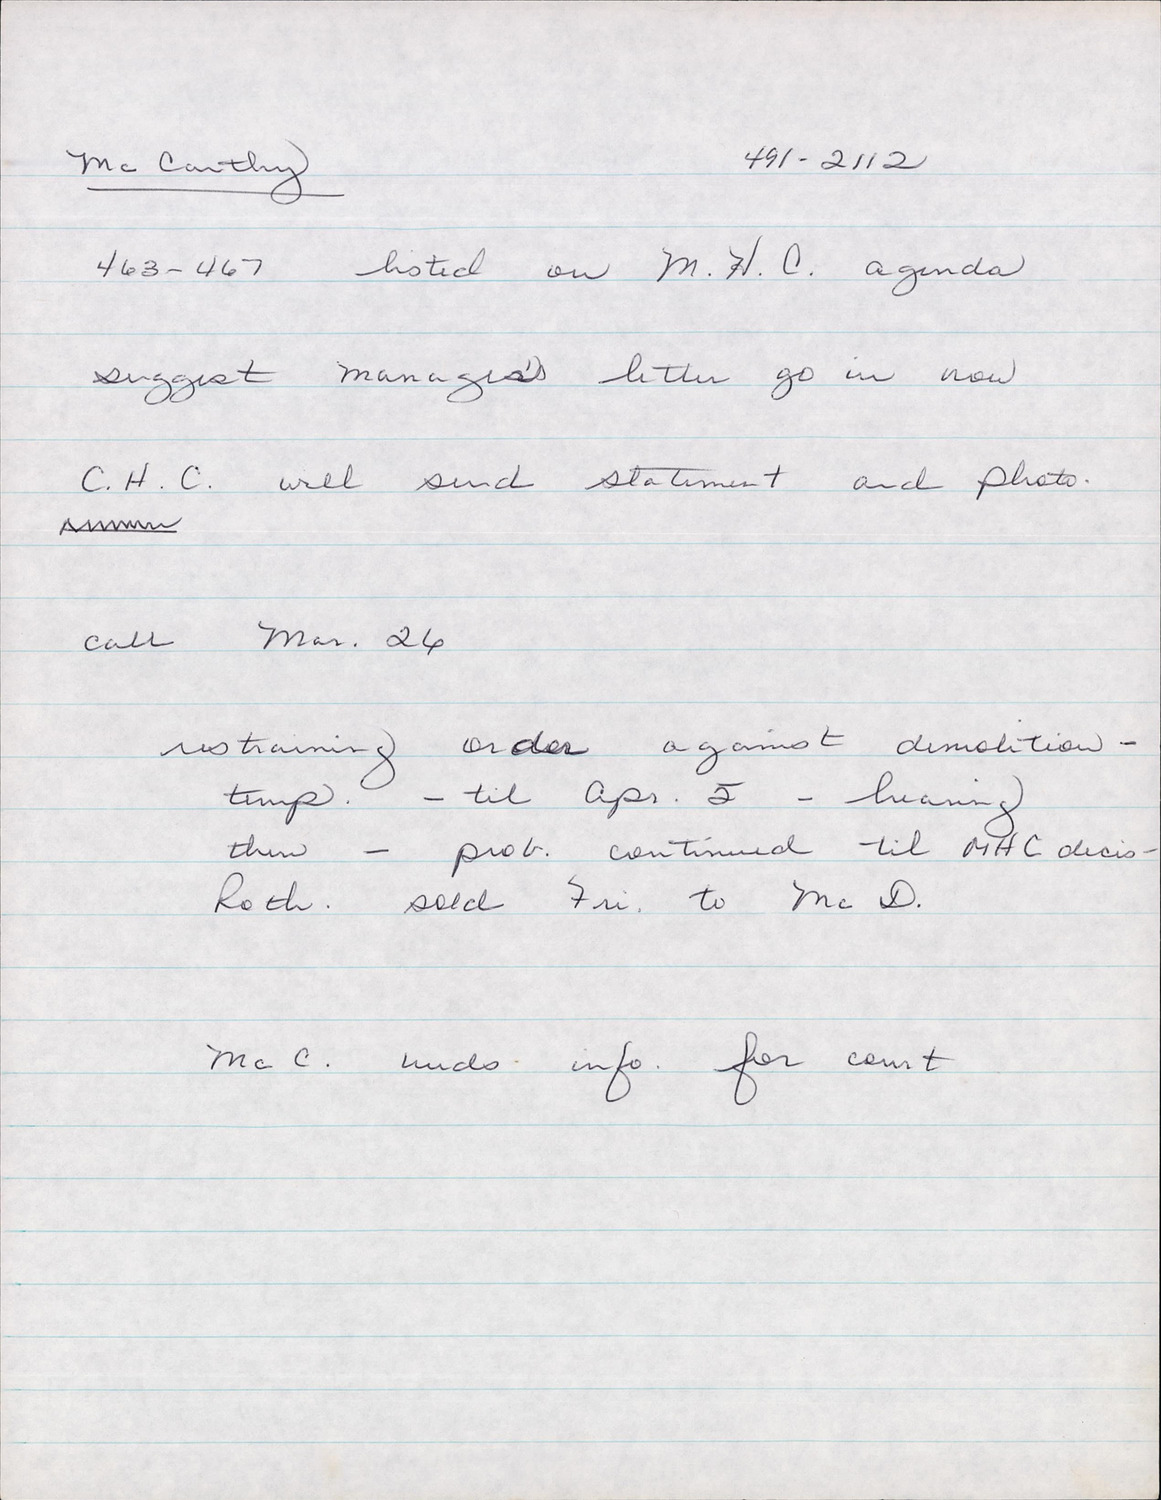 Mc Carthy 491-2112
463-467 listed on M.H.C. agenda
suggest manager's letter go in now
C.H.C. will send statement and photo.
call Mar. 26
restraining order against demolition -
temp. - til Apr. 5 - hearing
then - prob. continued til MHC decis-
Roth. sold Fri. to Mc D.
Mc C. needs info. for court